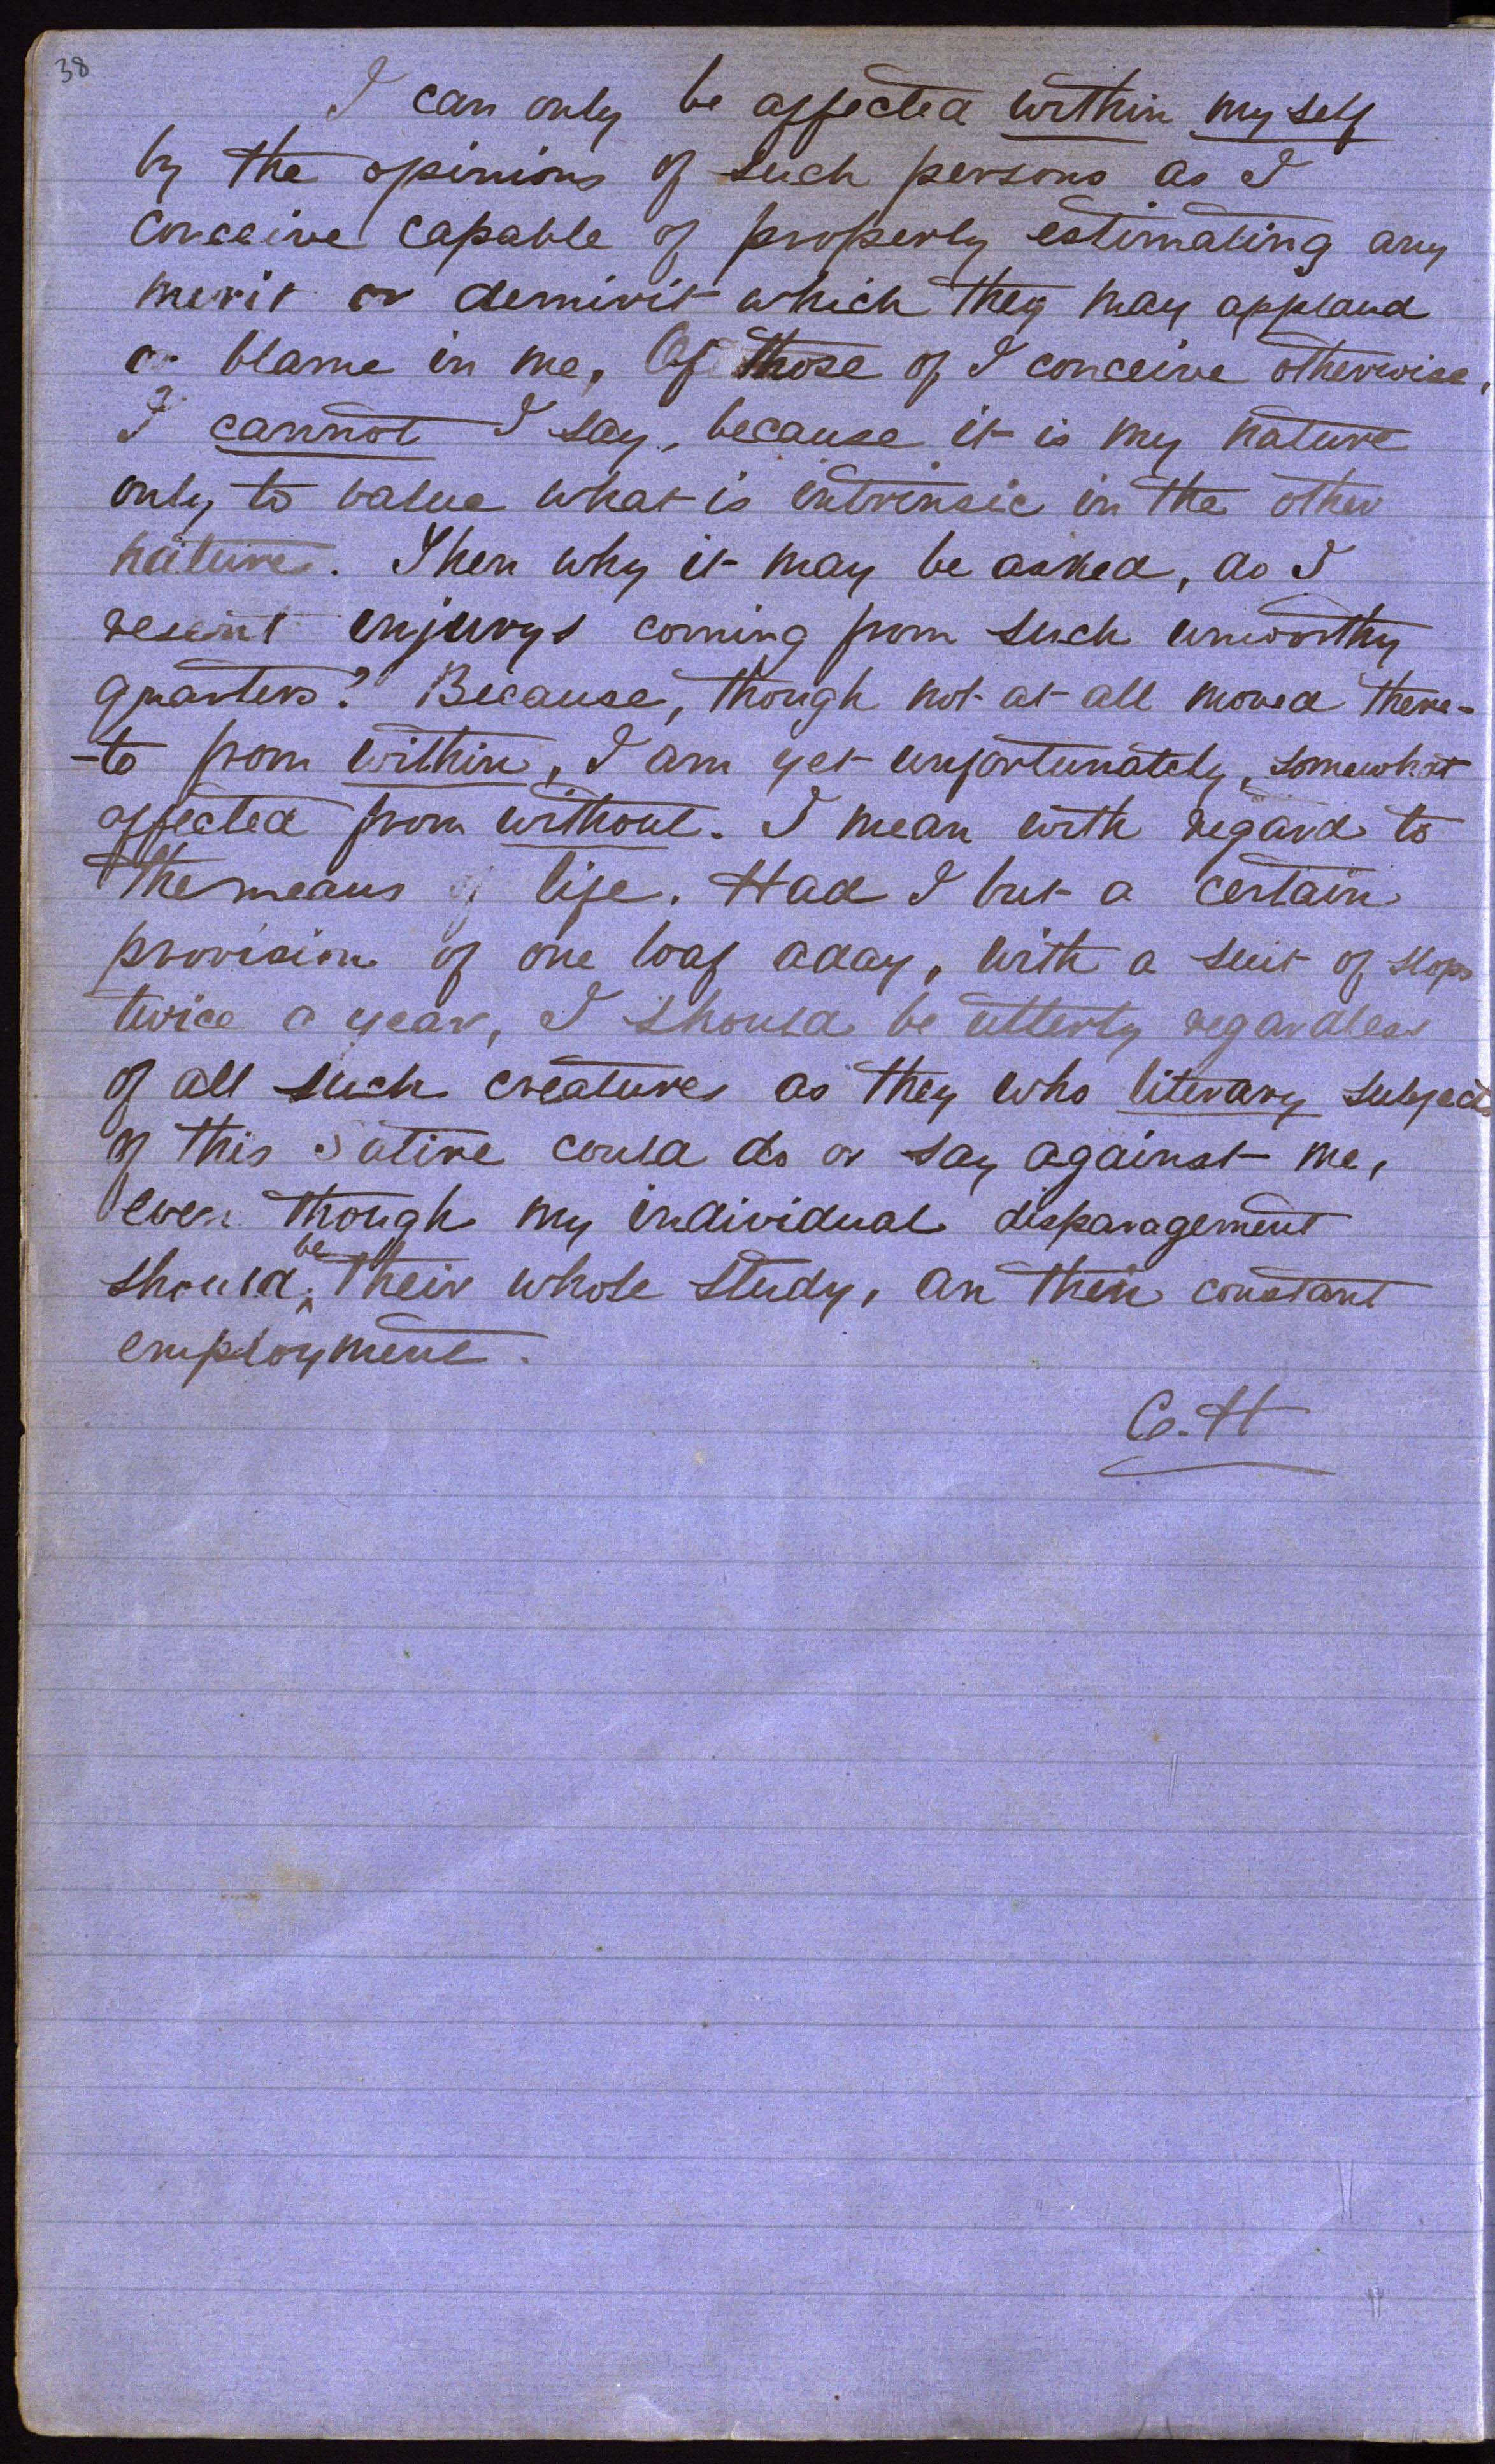 38
I can only be affected within myself
by the opinions of such persons as I
conceive capable of properly estimating any
merit or demirit which they may applaud
or blame in me, Of those of I conceive otherwise,
I cannot I say, because it is my nature
only to value what is intrinsic in the other
natures. Then why it may be asked, do I
resent injurys coming from such unworthy
quarters? Because, though not at all moved there-
-to from within, I am yet unfortunately, somewhat
affected from without. I mean with regard to
the means of life. Had I but a certain
provision of one loaf aday, with a suit of slops
twice a year, I should be utterly regardless
of all such creatures as they who literary subjects
of this Satire could do or say against me,
even though my individual disparagement
should be their whole study, an their constant
employment.
C. H